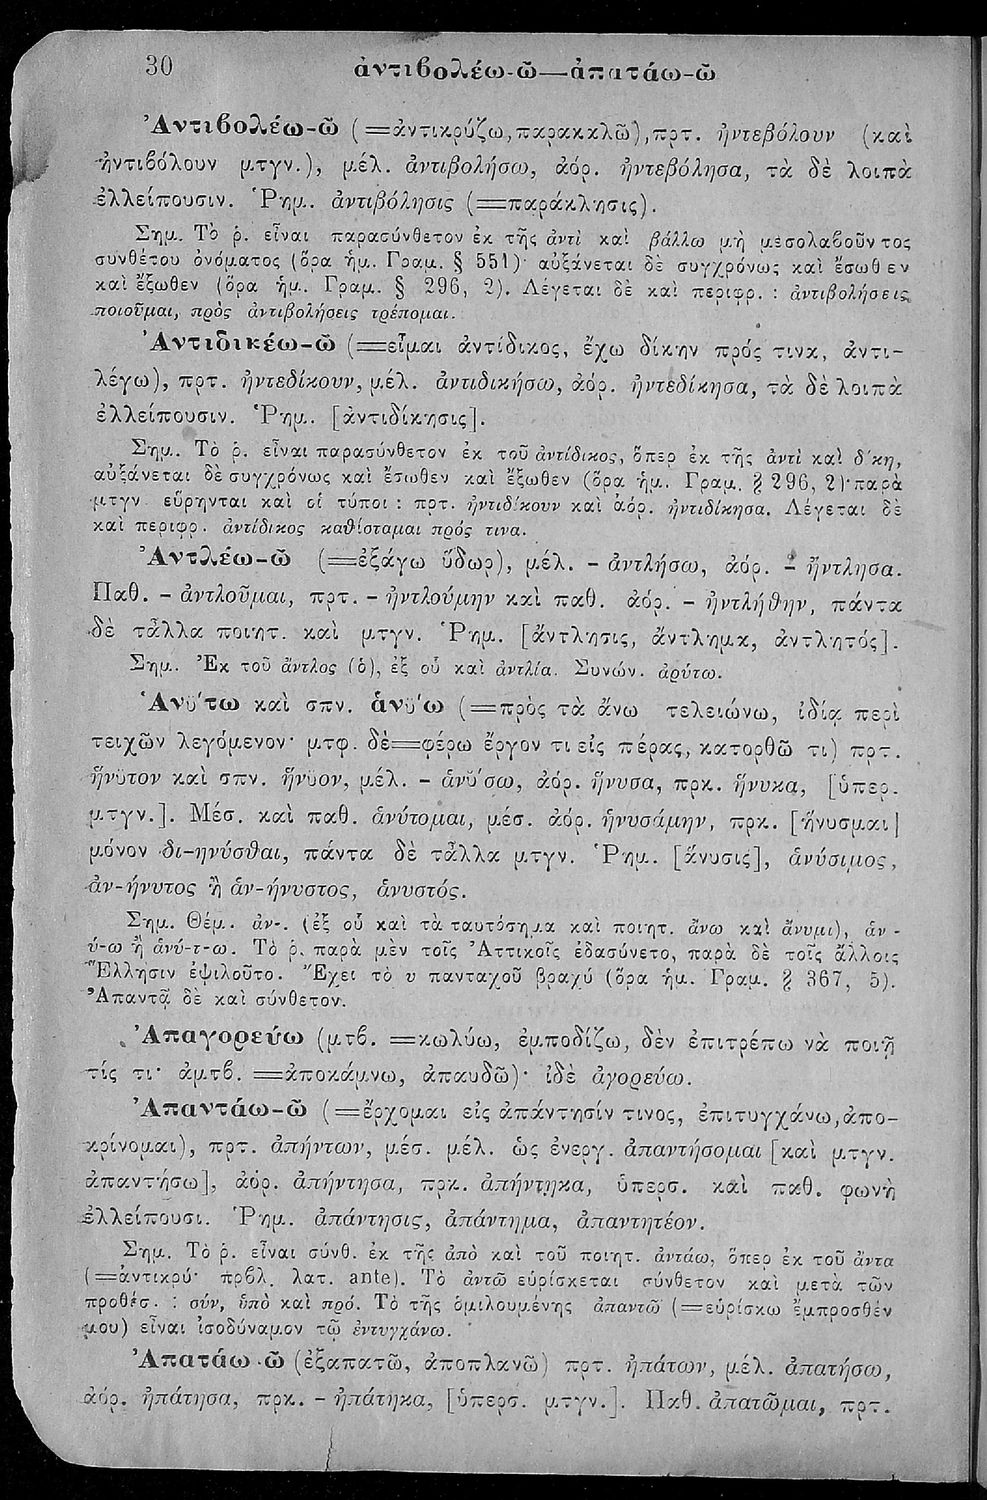 30
ἀντιβολέω-ῶ—ἀπατάω-ῶ
Ἀντιβολέω-ῶ (=ἀντικρύζω, παρακαλῶ), πρτ. ἠντεβόλουν (καὶ
ἠντιβόλουν μτγν.), μέλ. ἀντιβολήσω, ἀόρ. ἠντεβόλησα, τὰ δὲ λοιπὰ
ἐλλείπουσιν. Ῥημ. ἀντιβόλησις (=παράκλησις).
Σημ. Τὸ ῥ. εἶναι παρασύνθετον ἐκ τῆς ἀντὶ καὶ βάλλω μὴ μεσολαβοῦντος
συνθέτου ὀνόματος (ὅρα ἡμ. Γραμ. § 551)· αὐξάνεται δὲ συγχρόνως καὶ ἔσωθεν
καὶ ἔξωθεν (ὅρα ἡμ. Γραμ. § 296, 2). Λέγεται δὲ καὶ περιφρ. : ἀντιβολήσεις
ποιοῦμαι, πρὸς ἀντιβολήσεις τρέπομαι.
Ἀντιδικέω-ῶ (=εἶμαι ἀντίδικος, ἔχω δίκην πρός τινα, ἀντι-
λέγω), πρτ. ἠντεδίκουν, μέλ. ἀντιδικήσω, ἀόρ. ἠντεδίκησα, τὰ δὲ λοιπὰ
ἐλλείπουσιν. Ῥημ. [ἀντιδίκησις].
Σημ. Τὸ ῥ. εἶναι παρασύνθετον ἐκ τοῦ ἀντίδικος, ὅπερ ἐκ τῆς ἀντὶ καὶ δίκη,
αὐξάνεται δὲ συγχρόνως καὶ ἔσωθεν καὶ ἔξωθεν (ὅρα ἡμ. Γραμ. § 296, 2)· παρὰ
μτγν. εὕρηνται καὶ οἱ τύποι : πρτ. ἠντιδίκουν καὶ ἀόρ. ἠντιδίκησα. Λέγεται δὲ
καὶ περιφρ. ἀντίδικος καθίσταμαι πρός τινα.
Ἀντλέω-ῶ (=ἐξάγω ὕδωρ), μέλ. - ἀντλήσω, ἀόρ. - ἤντλησα.
Παθ. - ἀντλοῦμαι, πρτ. - ἠντλούμην καὶ παθ. ἀόρ. - ἠντλήθην, πάντα
δὲ τἆλλα ποιητ. καὶ μτγν. Ῥημ. [ἄντλησις, ἄντλημα, ἀντλητός].
Σημ. Ἐκ τοῦ ἄντλος (ὁ), ἐξ οὗ καὶ ἀντλία. Συνών. ἀρύτω.
Ἁνύ̆τω καὶ σπν. ἁνύ̆ω (=πρὸς τὰ ἄνω τελειώνω, ἰδίᾳ περὶ
τειχῶν λεγόμενον· μτφ. δὲ=φέρω ἔργον τι εἰς πέρας, κατορθῶ τι) πρτ.
ἥνῠτον καὶ σπν. ἥνῠον, μέλ. - ἁνύ̆σω, ἀόρ. ἥνυσα, πρκ. ἥνυκα, [ὑπερ.
μτγν.]. Μέσ. καὶ παθ. ἁνύτομαι, μέσ. ἀόρ. ἡνυσάμην, πρκ. [ἥνυσμαι]
μόνον δι-ηνύσθαι, πάντα δὲ τἆλλα μτγν. Ῥημ. [ἄνυσις], ἁνύσιμος,
ἀν-ήνυτος ἢ ἀν-ήνυστος, ἁνυστός.
Σημ. Θέμ. ἀν-. (ἐξ οὗ καὶ τὰ ταυτόσημα καὶ ποιητ. ἄνω καὶ ἄνυμι), ἁν-
ύ-ω ἢ ἁνύ-τ-ω. Τὸ ῥ. παρὰ μὲν τοῖς Ἀττικοῖς ἐδασύνετο, παρὰ δὲ τοῖς ἄλλοις
Ἕλλησιν ἐψιλοῦτο. Ἔχει τὸ υ πανταχοῦ βραχύ (ὅρα ἡμ. Γραμ. § 367, 5).
Ἀπαντᾷ δὲ καὶ σύνθετον.
Ἀπαγορεύω (μτβ. =κωλύω, ἐμποδίζω, δὲν ἐπιτρέπω νὰ ποιῇ
τίς τι· ἀμτβ. =ἀποκάμνω, ἀπαυδῶ)· ἰδὲ ἀγορεύω.
Ἀπαντάω-ῶ (=ἔρχομαι εἰς ἀπάντησίν τινος, ἐπιτυγχάνω, ἀπο-
κρίνομαι), πρτ. ἀπήντων, μέσ. μέλ. ὡς ἐνεργ. ἀπαντήσομαι [καὶ μτγν.
ἀπαντήσω], ἀόρ. ἀπήντησα, πρκ. ἀπήντηκα, ὑπερσ. καὶ παθ. φωνὴ
ἐλλείπουσι. Ῥημ. ἀπάντησις, ἀπάντημα, ἀπαντητέον.
Σημ. Τὸ ῥ. εἶναι σύνθ. ἐκ τῆς ἀπὸ καὶ τοῦ ποιητ. ἀντάω, ὅπερ ἐκ τοῦ ἄντα
(=ἀντικρύ· πρβλ. λατ. ante). Τὸ ἀντῶ εὑρίσκεται σύνθετον καὶ μετὰ τῶν
προθέσ. : σύν, ὑπὸ καὶ πρό. Τὸ τῆς ὁμιλουμένης ἀπαντῶ (=εὑρίσκω ἔμπροσθέν
μου) εἶναι ἰσοδύναμον τῷ ἐντυγχάνω.
Ἀπατάω-ῶ (ἐξαπατῶ, ἀποπλανῶ) πρτ. ἠπάτων, μέλ. ἀπατήσω,
ἀόρ. ἠπάτησα, πρκ. - ἠπάτηκα, [ὑπερσ. μτγν.]. Παθ. ἀπατῶμαι, πρτ.